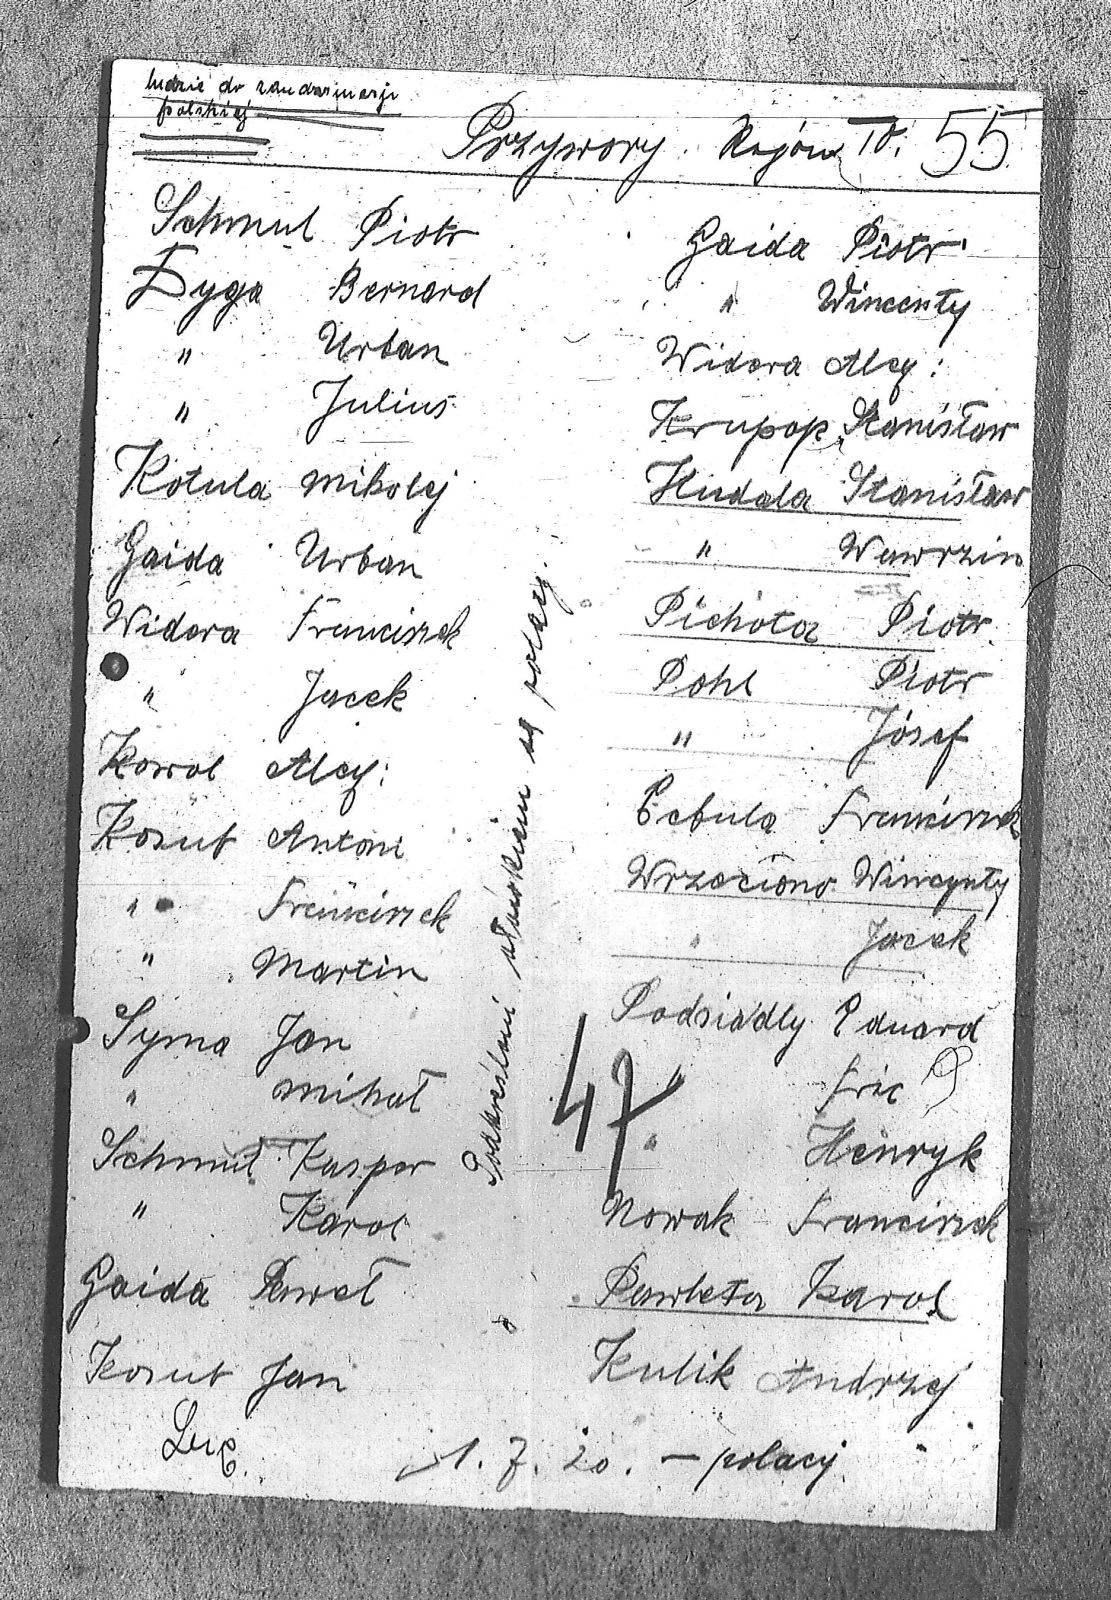 ludzie do żandarmerji
polskiej
Przywory. Rejon IV. 55
Schmul Piotr
Dyga Bernard
" Urban
" Julius
Kotula Mikolej
Gaida Urban
Widera Franciszek
" Jacek
Kowol Alex:
Kozub Antoni
" Franciszek
" Martin
Syma Jan
" Mihał
Schmul Kasper
" Karol
Gaida Paweł
Kozub Jan
Gaida Piotr
" Wincenty
Widera Alex:
Krupop Stanisław
Kudala Stanisław
" Wawrzin
Pichota Piotr
Pohl Piotr
" Józef
Cebula Franciszek
Wrzeciono Wincynty
" Jacek
Podsiadly Eduard
" Eric
" Henryk
Nowak Franciszek
Pawleta Karol
Kulik Andrzej
Podkreślani ołówkiem są polacy.
47
1. 7. 20. – polacy